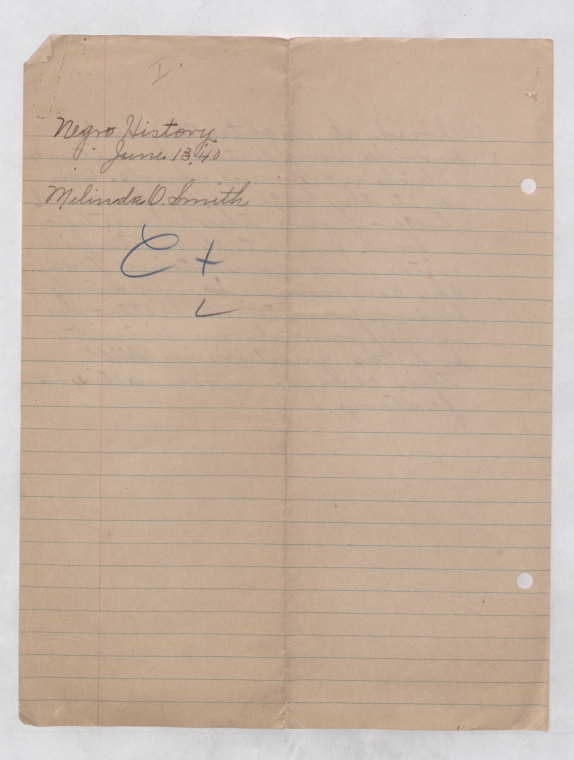 I
Negro History
June 13, '40
Melinda O. Smith
C +